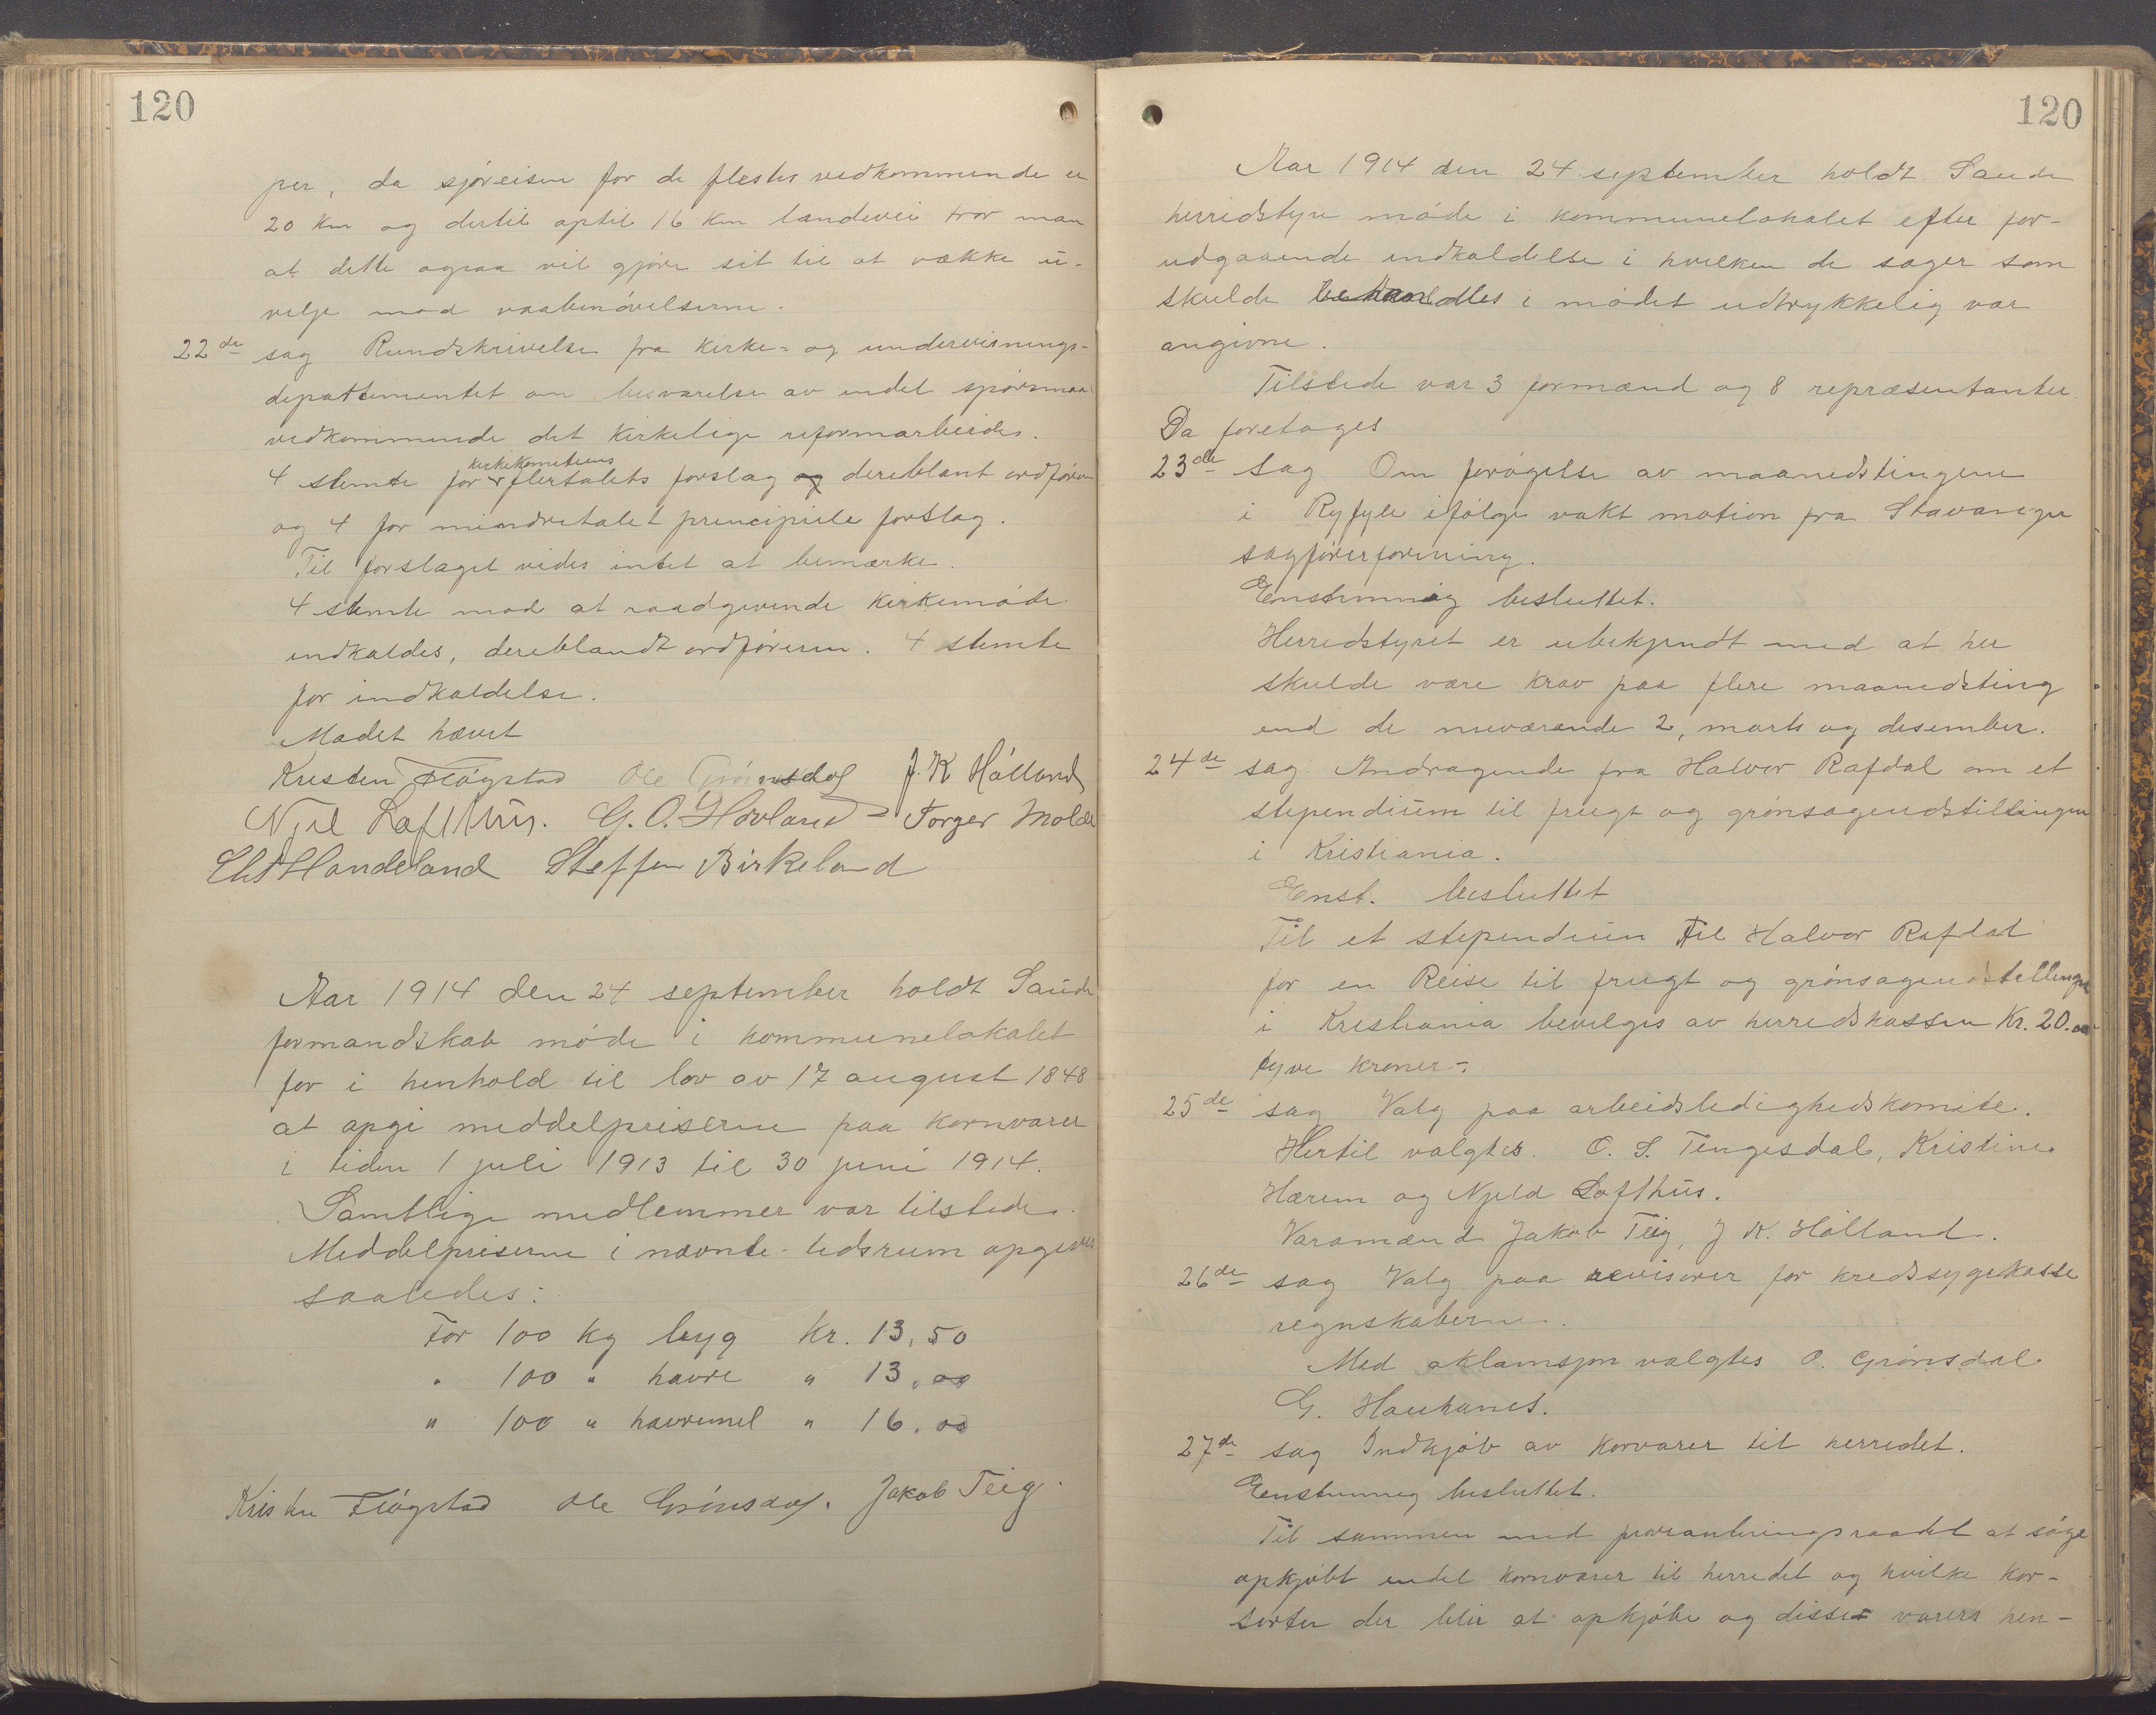 120
per, da sjøreisen for de flestes vedkommende er
20 km og dertil optil 16 km landevei tror man
at dette ogsaa vil gjøre sit til at vække u-
velje mod vaabenøvelserne.
22de sag Rundskrivelse fra Kirke- og undervisnings-
departementet om besvarelse av endel spørsmaal
vedkommende det kirkelige reformarbeide.
kirkekomiteens
4 stemte for flertalets forslag og dereblant ordføreren
og 4 for mindretalet principiele forslag.
Til forslaget vides intet at bemærke.
4 stemte mod at raadgivende kirkemøde
indkaldes, dereblandt ordføreren. 4 stemte
for indkaldelse.
Mødet hævet
Kristen Fløgstad Ole Grønsdal J. K Hålland
Njel Lofthus. G. O. Hovland Torger Molde
Chr Handeland Steffen Birkeland
Aar 1914 den 24 september holdt Saude
formandskab møde i kommunelokalet
for i henhold til lov av 17 august 1848
at opgi meddelpriserne paa kornvarer
i tiden 1 juli 1913 til 30 juni 1914.
Samtlige medlemmer var tilstede.
Meddelpriserne i nævnte tidsrum opgives
saaledes:
For 100 kg byg Kr. 13,50
" 100 " havre " 13,00
" 100 " havremel " 16,00
Kristen Fløgstad Ole Grønsdal. Jakob Teig.
120
Aar 1914 den 24 september holdt Saude
herredstyre møde i kommunelokalet efter for-
udgaaende indkaldelse i hvilken de sager som
skulde behandles i mødet udtrykkelig var
angivne.
Tilstede var 3 formænd og 8 repræsentanter.
Da foretoges
23de Sag Om forøgelse av maanedstingene
i Ryfyle ifølge vakt motion fra Stavanger
sagførerforening.
Enstemmig besluttet.
Herredstyret er ubekjendt med at her
skulde være krav paa flere maanedsting
end de nuværende 2, marts og desember.
24de sag Andragende fra Halvor Rafdal om et
stipendium til frugt og grønsagendstillingen
i Kristiania.
Enst. besluttet
Til et stipendium til Halvor Rafdal
for en Reise til frugt og grønsagendstillingen
i Kristiania bevilges av herredskassen Kr. 20.00
tyve kroner.
25de sag Valg paa arbeidsledighedskomite.
Hertil valgtes. O. S. Tengesdal, Kristine
Hærem og Njeld Lofthus.
Varamænd Jakob Teig, J K. Hålland.
26de sag Valg paa revisorer for kredssygekasse
regnskaberne.
Med aklamasjon valgtes O. Grønsdal
G. Haukanes.
27de sag Indkjøb av kornvarer til herredet.
Enstemmig besluttet.
Til sammen med provianteringsraadet at søge
opkjøbt endel kornvarer til herredet og hvilke kor-
sorter der blir at opkjøbe og disse varers hen-